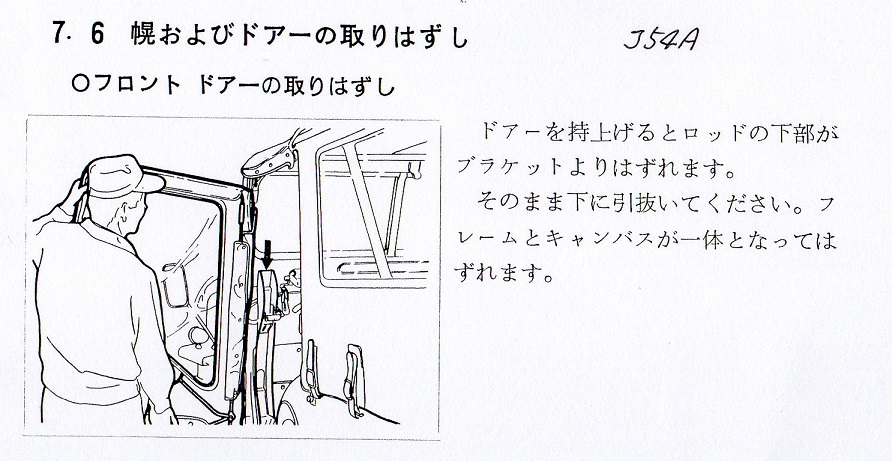 7. 6 幌およびドアーの取りはずし
J54A
○フロント ドアーの取りはずし
ドアーを持上げるとロッドの下部が
ブラケットよりはずれます。
そのまま下に引抜いてください。フ
レームとキャンバスが一体となっては
ずれます。